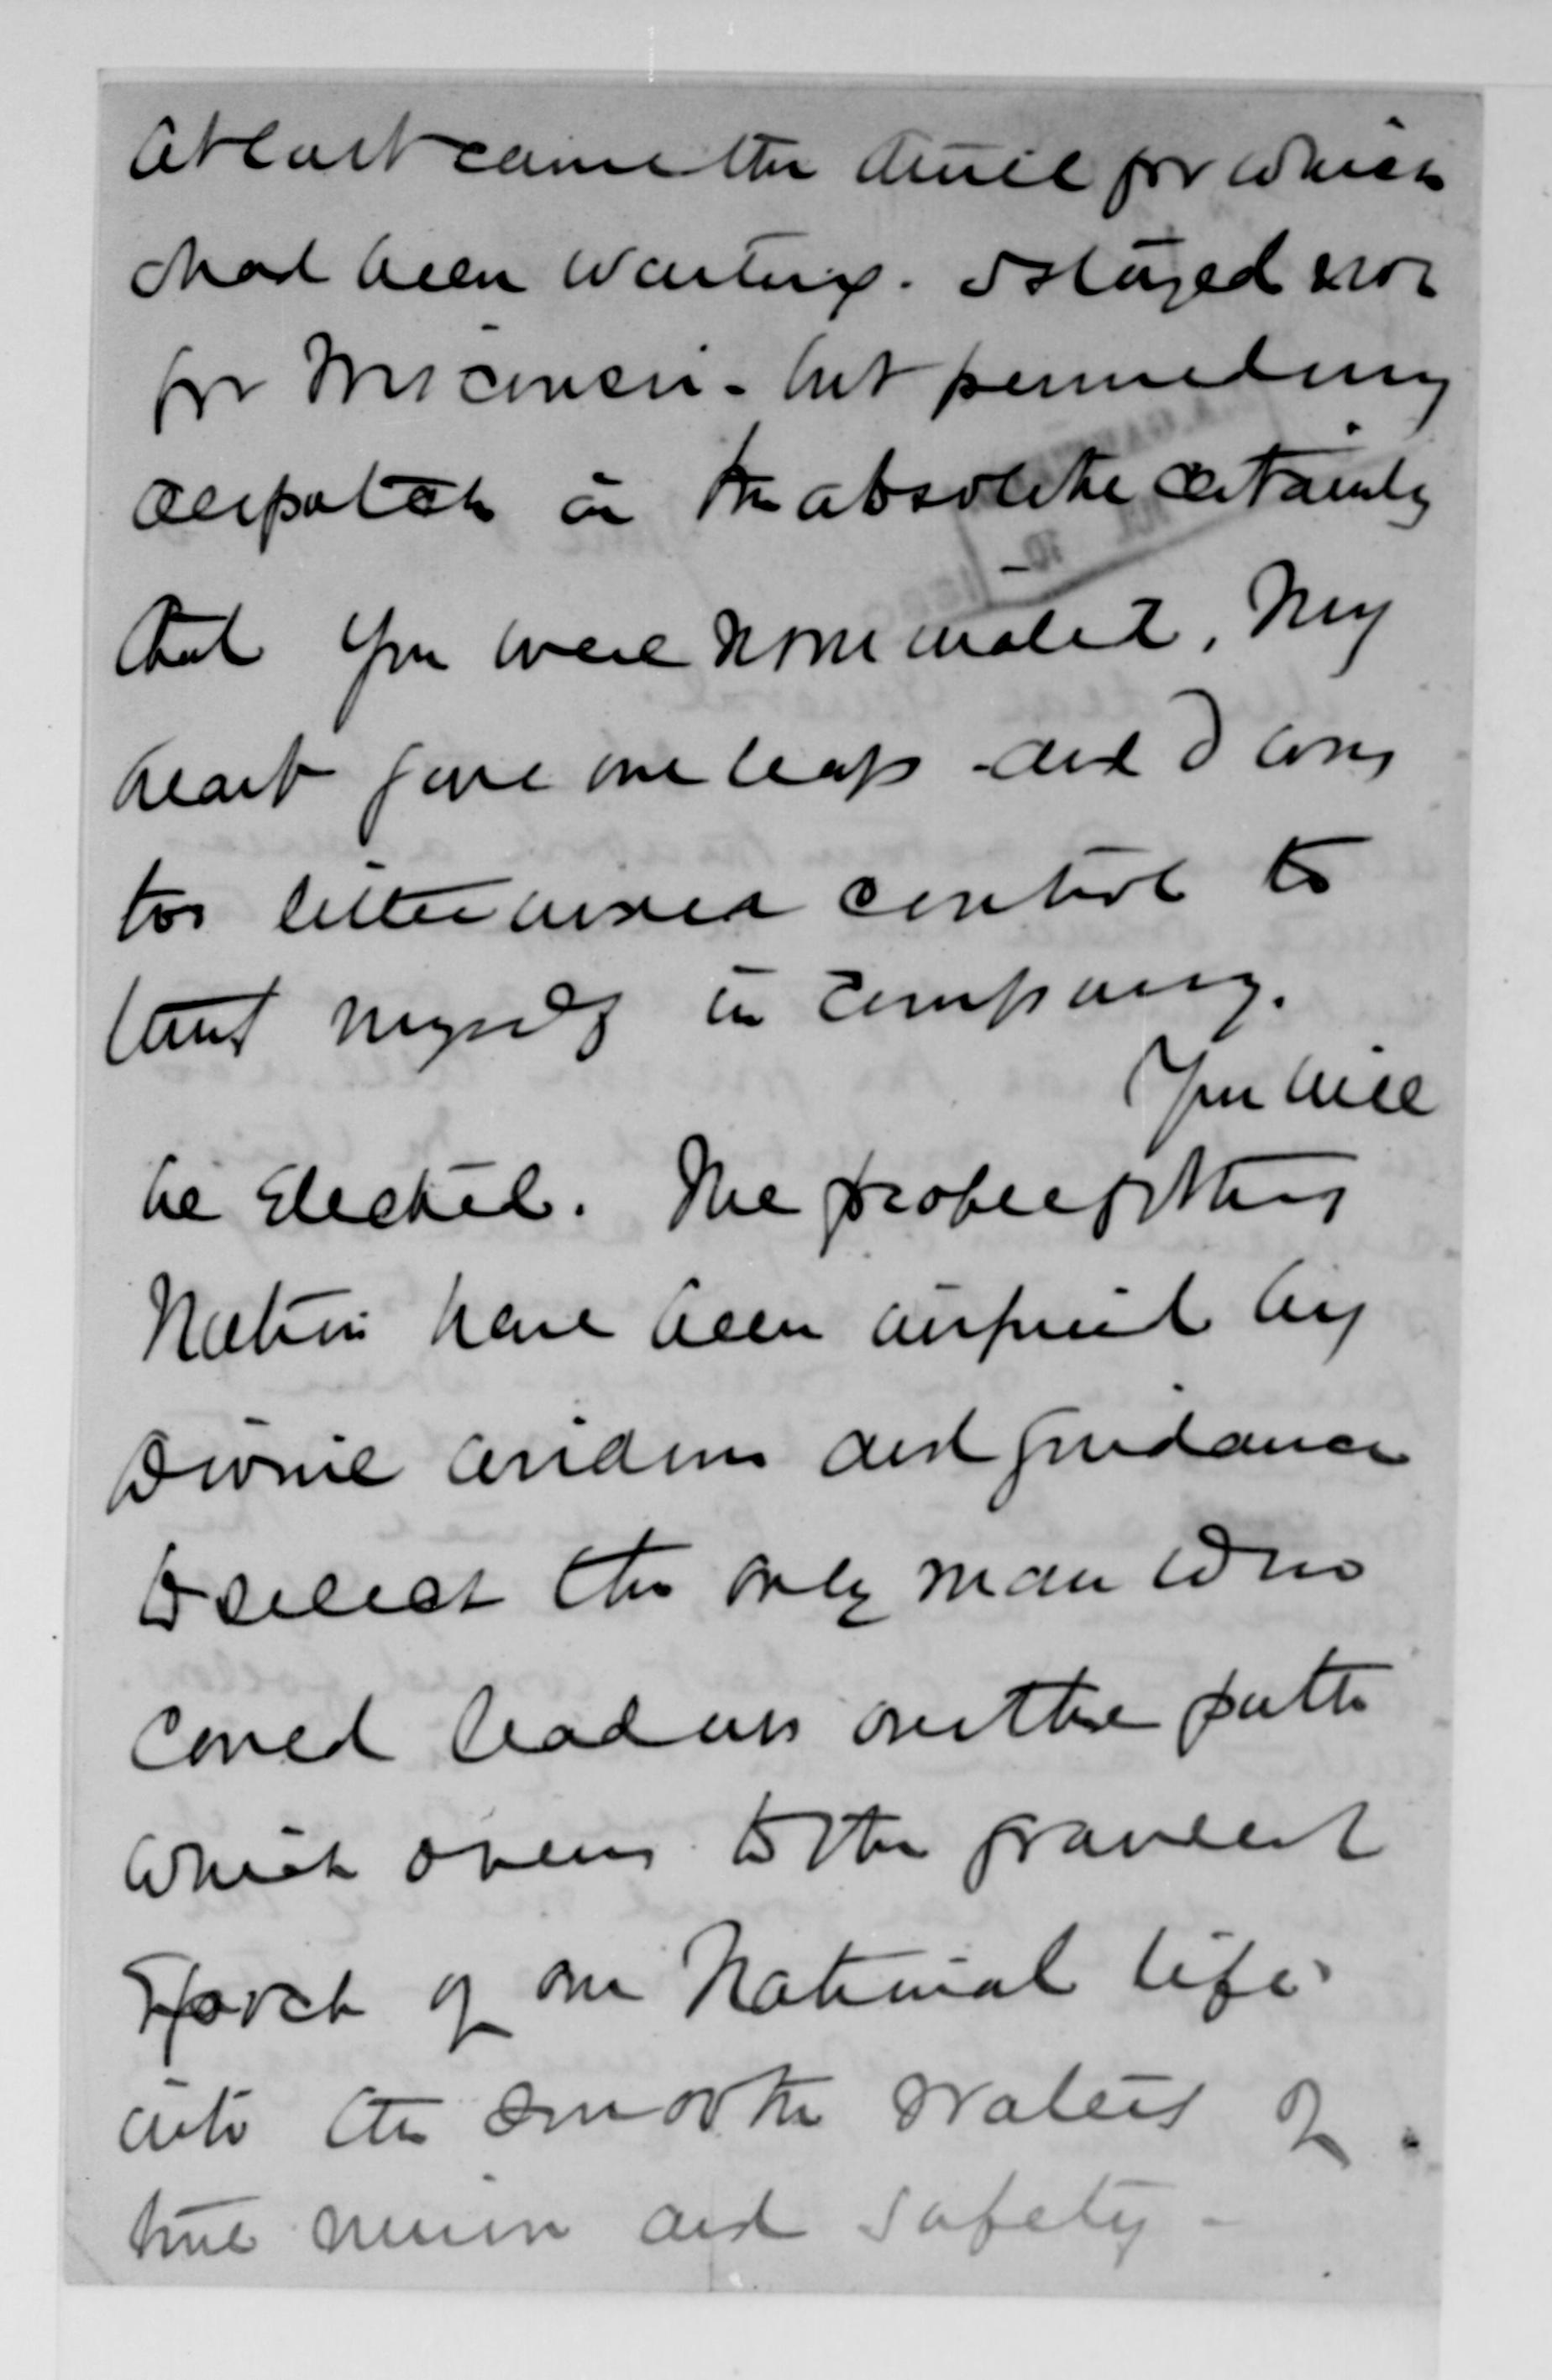 At last came the time for which
I had been waiting. I stayed not
for Wisconsin - but penned my
despatch in the absolute certainty
that you were nominated. My
heart gave one leap - and I was
too little under control to
trust myself in company.
You will
be Elected. The people of this
Nation have been inspired by
Divine wisdom and guidance
to select the only man who
could lead us over the path
which opens to the grandest
Epoch of our National life
into the smooth waters of
true union and safety -